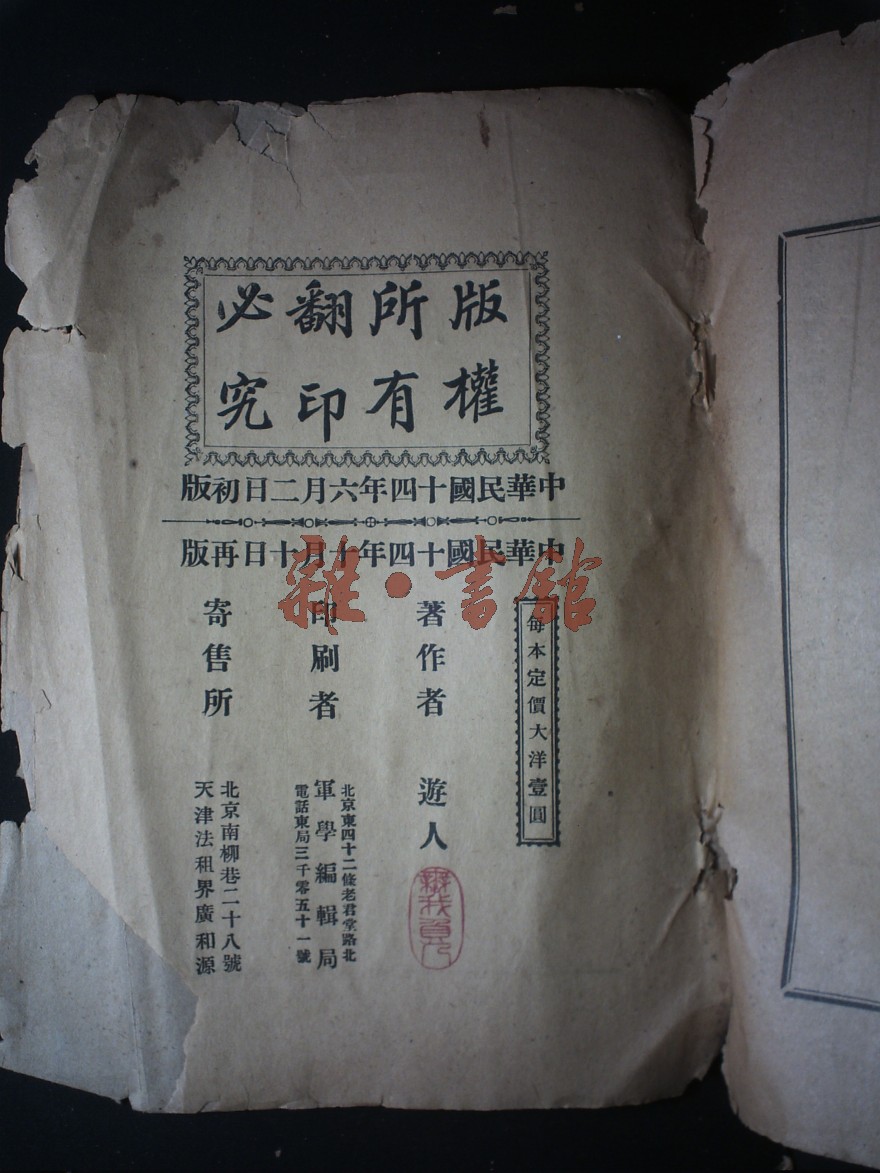 版權
所有
翻印
必究
中華民國十四年六月二日初版
中華民國十四年十月十日再版
每本定價大洋壹圓
著作者 遊人
印刷者
北京東四十二條老君堂路北
軍學編輯局
電話東局三千零五十一號
寄售所
北京南柳巷二十八號
天津法租界廣和源
雜·書館